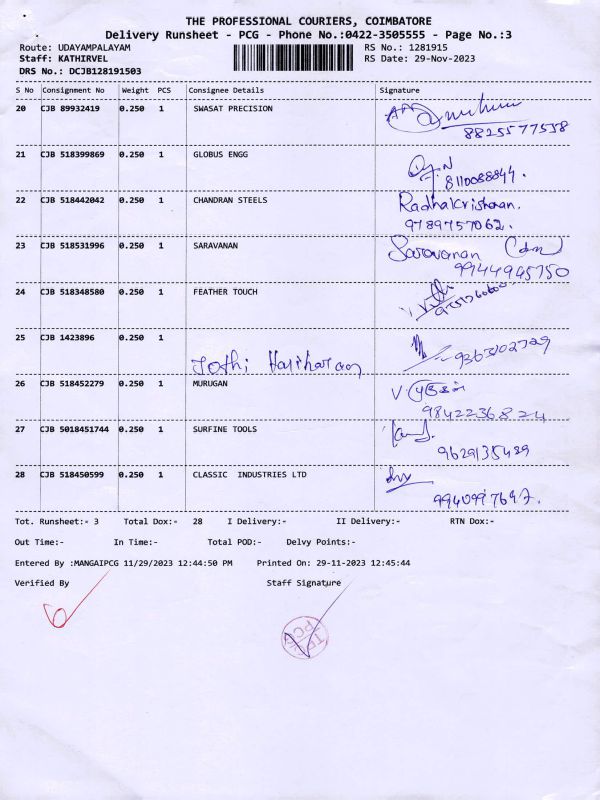 THE PROFESSIONAL COURIERS, COIMBATORE
Delivery Runsheet - PCG - Phone No.:0422-3505555 - Page No.:3
Route: UDAYAMPALAYAM RS No.: 1281915
Staff: KATHIRVEL RS Date: 29-Nov-2023
DRS No.: DCJB128191503
S No Consignment No Weight PCS Consignee Details Signature
20 CJB 89932419 0.250 1 SWASAT PRECISION
8825577538
21 CJB 518399869 0.250 1 GLOBUS ENGG
8110088844.
22 CJB 518442042 0.250 1 CHANDRAN STEELS Radhakrishnan.
9789757062.
23 CJB 518531996 0.250 1 SARAVANAN Saravanan
99144945750
24 CJB 518348580 0.250 1 FEATHER TOUCH
25 CJB 1423896 0.250 1
Jothi Hariharan 9363102729
26 CJB 518452279 0.250 1 MURUGAN V. முருகன்
9842236824
27 CJB 5018451744 0.250 1 SURFINE TOOLS
9629135489
28 CJB 518450599 0.250 1 CLASSIC INDUSTRIES LTD
9940997697.
Tot. Runsheet:- 3 Total Dox:- 28 I Delivery:- II Delivery:- RTN Dox:-
Out Time:- In Time:- Total POD:- Delvy Points:-
Entered By :MANGAIPCG 11/29/2023 12:44:50 PM Printed On: 29-11-2023 12:45:44
Verified By Staff Signature